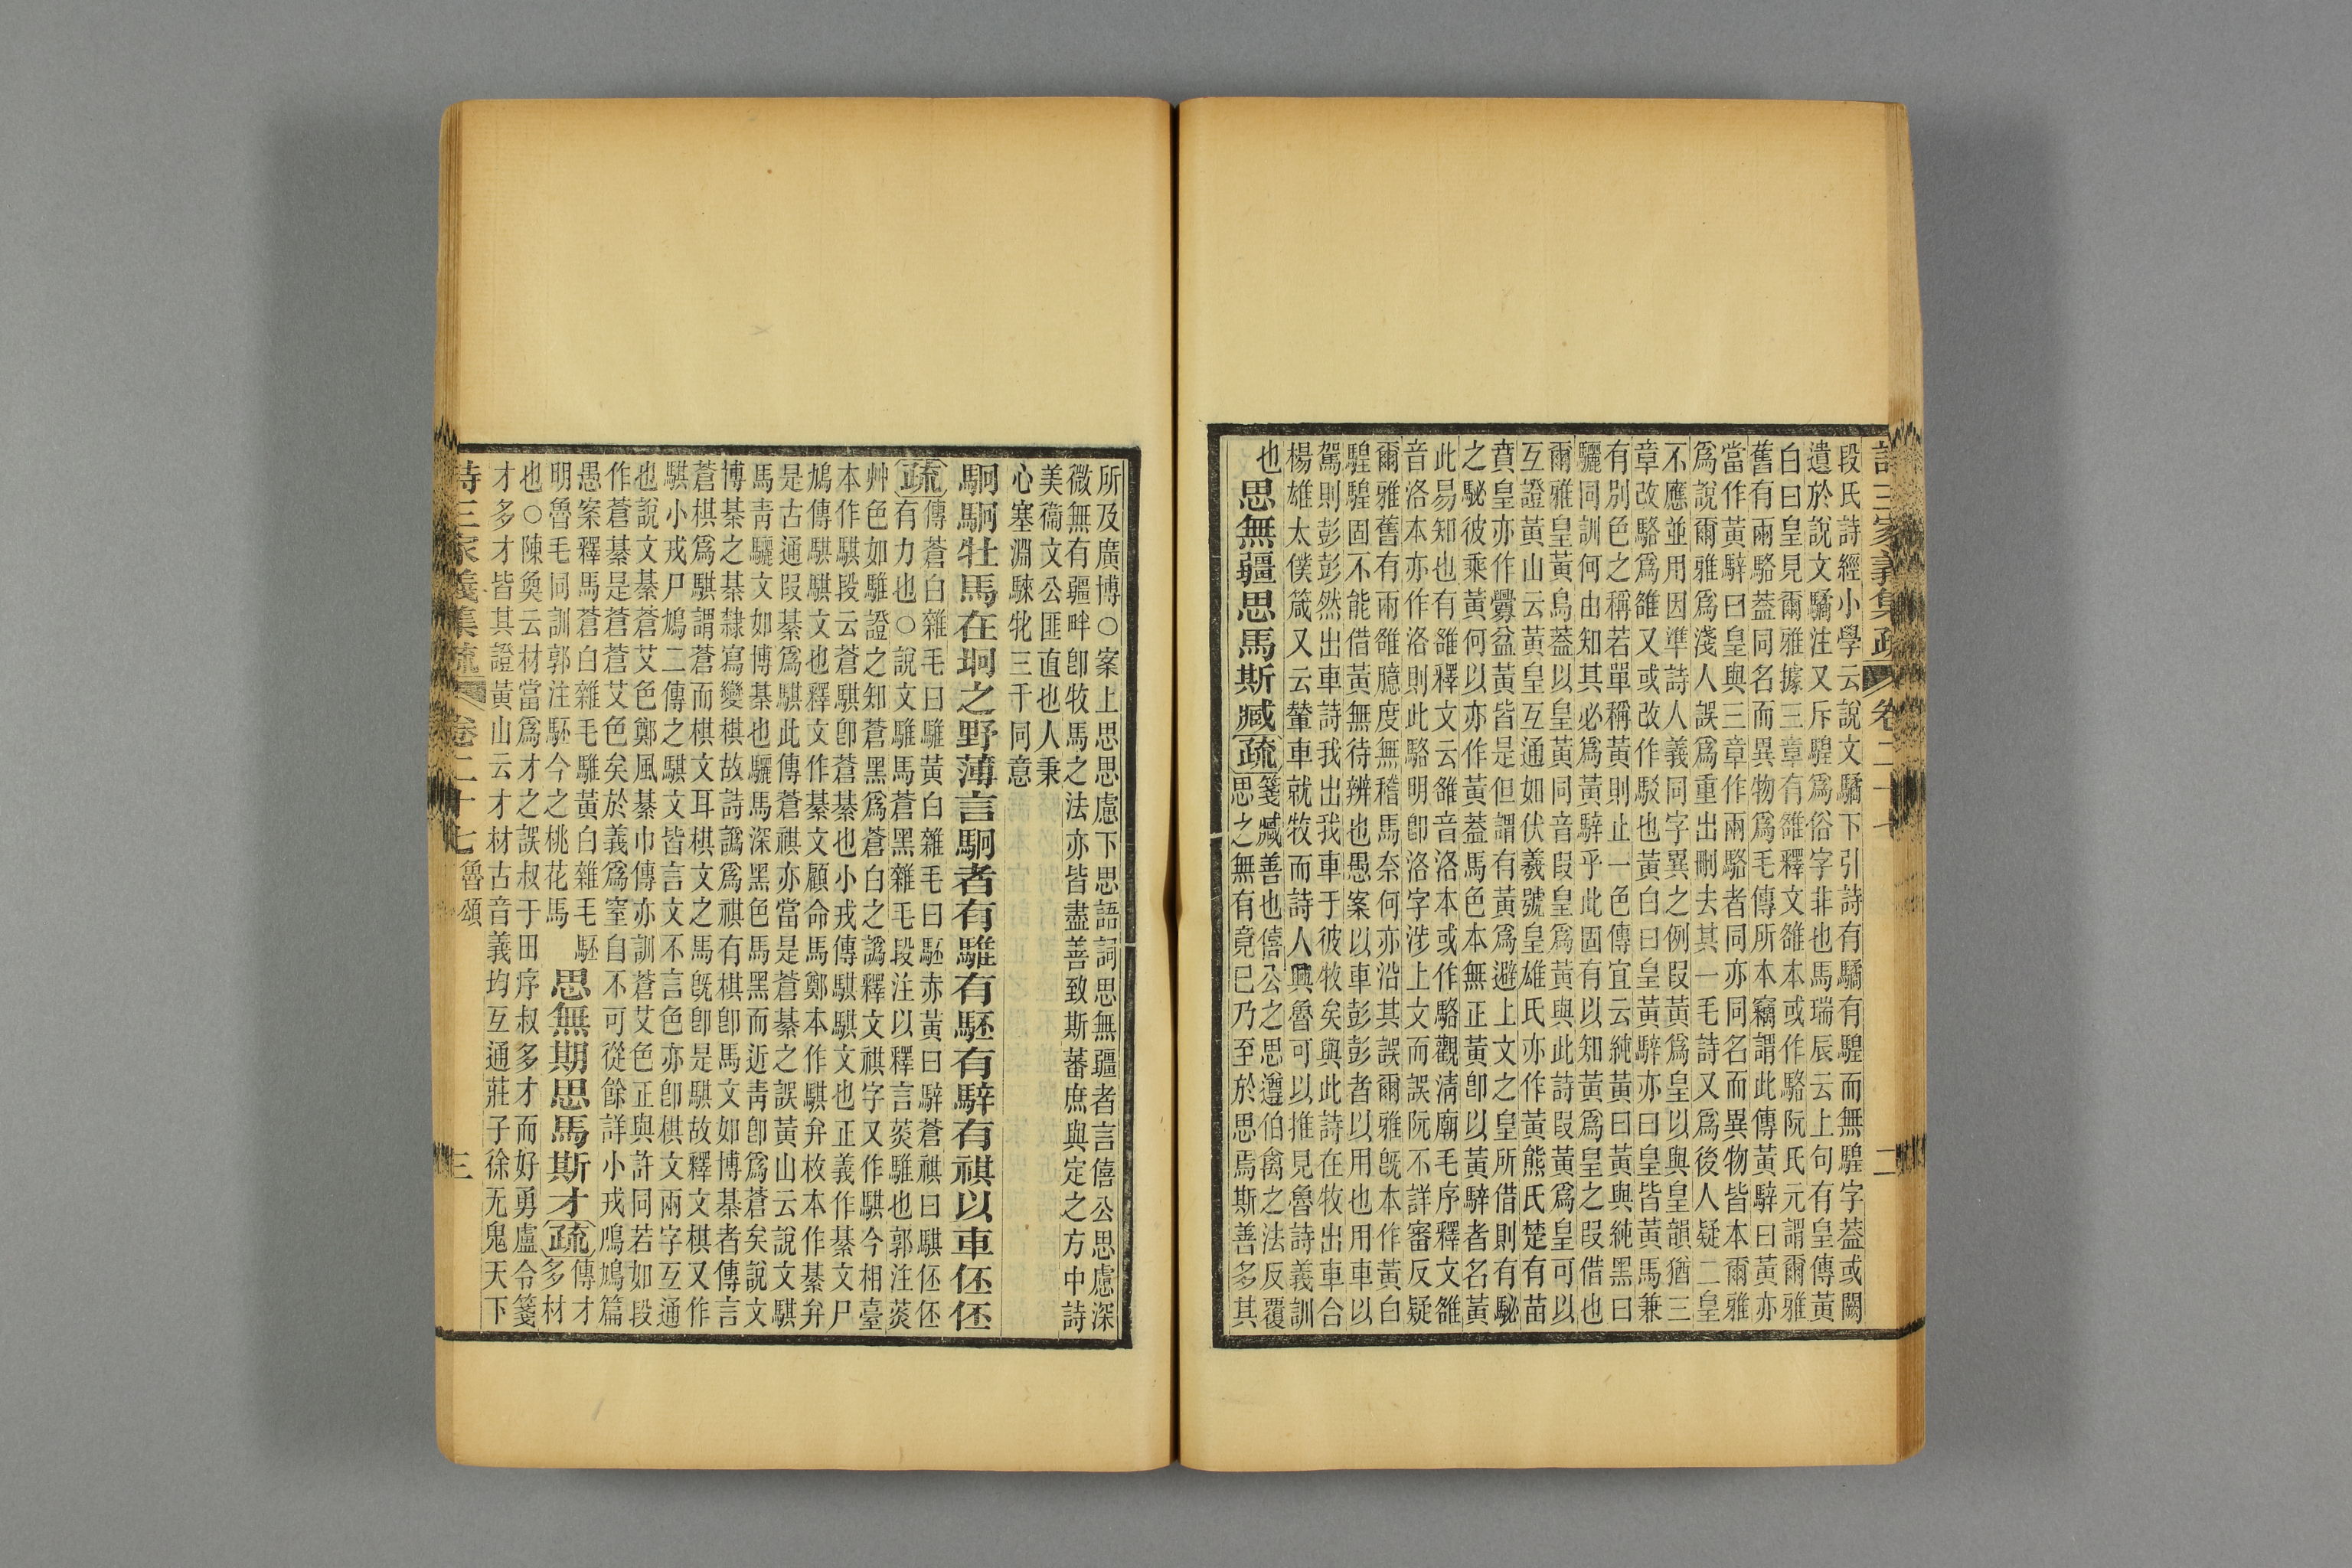 詩三家義集疏 卷二十七 二
段氏詩經小學云說文驕下引詩有驕有騜而無騜字葢或闕
遺於說文驕注又斥騜爲俗字非也馬瑞辰云上句有皇傳黃
白曰皇見爾雅據三章有雒釋文雒本或作駱阮氏元謂爾雅
舊有兩駱葢同名而異物爲毛傳所本竊謂此傳黃騂曰黃亦
當作黃騂曰皇與三章作兩駱者同亦同名而異物皆本爾雅
爲說爾雅爲淺人誤爲重出刪去其一毛詩又爲後人疑二皇
不應並用因準詩人義同字異之例叚黃爲皇以與皇韻猶三
章改駱爲雒又或改作駁也黃白曰皇黃騂亦曰皇皆黃馬兼
有別色之稱若單稱黃則止一色傳宜云純黃曰黃與純黑曰
驪同訓何由知其必爲黃騂乎此固有以知黃爲皇之叚借也
爾雅皇黃鳥葢以皇黃同音叚皇爲黃與此詩叚黃爲皇可以
互證黃山云黃皇互通如伏羲號皇雄氏亦作黃熊氏楚有苗
賁皇亦作釁盆黃皆是但謂有黃爲避上文之皇所借則有駜
之駜彼乘黃何以亦作黃葢馬色本無正黃卽以黃騂者名黃
此易知也有雒釋文云雒音洛本或作駱觀淸廟毛序釋文雒
音洛本亦作洛則此駱明卽洛字涉上文而誤阮不詳審反疑
爾雅舊有兩雒臆度無稽馬奈何亦沿其誤爾雅旣本作黃白
騜騜固不能借黃無待辨也愚案以車彭彭者以用也用車以
駕則彭彭然出車詩我出我車于彼牧矣與此詩在牧出車合
楊雄太僕箴又云輦車就牧而詩人興魯可以推見魯詩義訓
也思無疆思馬斯臧疏箋臧善也僖公之思遵伯禽之法反覆
思之無有竟已乃至於思馬斯善多其
所及廣博○案上思思慮下思語詞思無疆者言僖公思慮深
微無有疆畔卽牧馬之法亦皆盡善致斯蕃庶與定之方中詩
美衞文公匪直也人秉
心塞淵騋牝三千同意
駉駉牡馬在坰之野薄言駉者有騅有駓有騂有祺以車伾伾
疏傳蒼白雜毛曰騅黃白雜毛曰駓赤黃曰騂蒼祺曰騏伾伾
有力也○說文騅馬蒼黑雜毛段注以釋言菼騅也郭注菼
艸色如騅證之知蒼黑爲蒼白之譌釋文祺字又作騏今相臺
本作騏段云蒼騏卽蒼綦也小戎傳騏騏文也正義作綦文尸
鳩傳騏騏文也釋文作綦文顧命馬鄭本作騏弁枚本作綦弁
是古通叚綦爲騏此傳蒼祺亦當是蒼綦之誤黃山云說文騏
馬靑驪文如博綦也驪馬深黑色馬黑而近靑卽爲蒼矣說文
博綦之綦隸寫變棋故詩譌爲祺有棋卽馬文如博綦者傳言
蒼棋爲騏謂蒼而棋文耳棋文之馬旣卽是騏故釋文棋又作
騏小戎尸鳩二傳之騏文皆言文不言色亦卽棋文兩字互通
也說文綦蒼艾色鄭風綦巾傳亦訓蒼艾色正與許同若如段
作蒼綦是蒼蒼艾色矣於義爲窒自不可從餘詳小戎鳲鳩篇
愚案釋馬蒼白雜毛騅黃白雜毛駓
明魯毛同訓郭注駓今之桃花馬
思無期思馬斯才疏傳才多材
也○陳奐云材當爲才之誤叔于田序叔多才而好勇盧令箋
才多才皆其證黃山云才材古音義均互通莊子徐无鬼天下
詩三家義集疏 卷二十七 魯頌 三